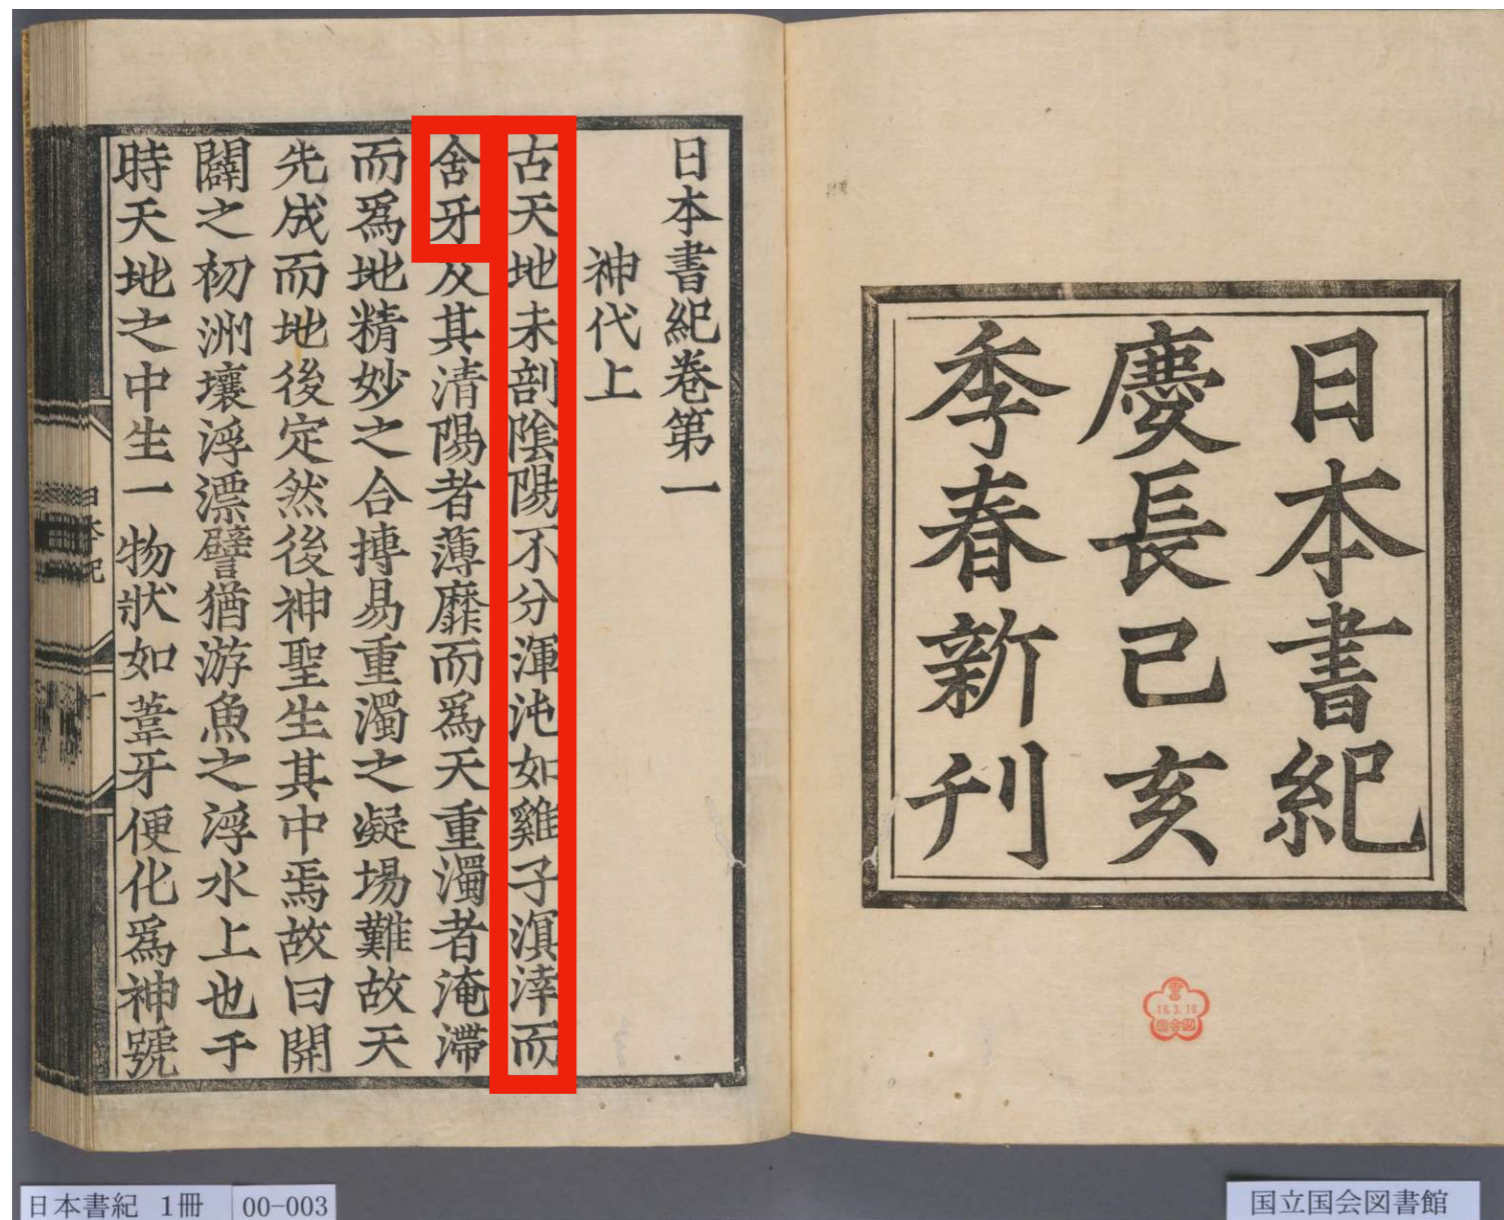 日本書紀
慶長己亥
季春新刊
日本書紀卷第一
神代上
古天地未剖陰陽不分渾沌如雞子溟涬而
含牙及其清陽者薄靡而爲天重濁者淹滯
而爲地精妙之合搏易重濁之凝場難故天
先成而地後定然後神聖生其中焉故曰開
闢之初洲壤浮漂譬猶游魚之浮水上也于
時天地之中生一物狀如葦牙便化爲神號
日本紀
一
16.3.18
日本書紀 1冊
00-003
国立国会図書館